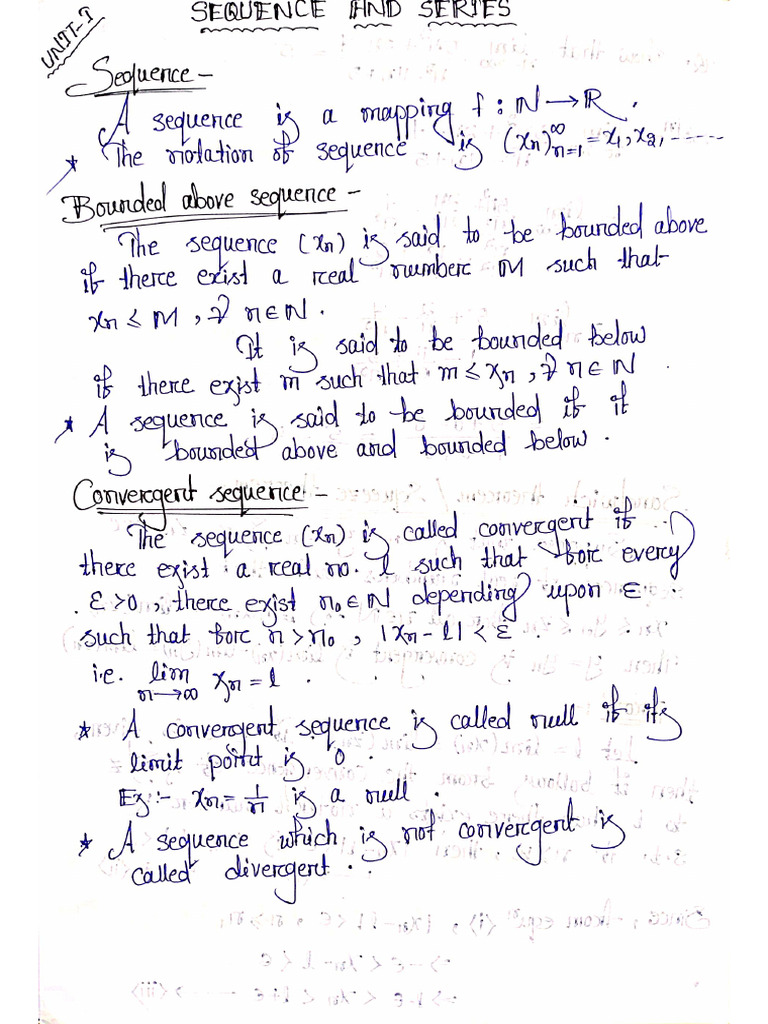 UNIT-I
SEQUENCE AND SERIES
Sequence -
A sequence is a mapping f : ℕ → ℝ .
* The notation of sequence is (xₙ)∞ₙ₌₁ = x₁, x₂, ------
Bounded above sequence -
The sequence (xₙ) is said to be bounded above
if there exist a real number M such that
xₙ ≤ M , ∀ n ∈ ℕ .
It is said to be bounded below
if there exist m such that m ≤ xₙ , ∀ n ∈ ℕ .
* A sequence is said to be bounded if it
is bounded above and bounded below .
Convergent sequence :-
The sequence (xₙ) is called convergent if
there exist a real no. l such that for every
ε > 0 , there exist n₀ ∈ ℕ depending upon ε
such that for n > n₀ , |xₙ - l| < ε
i.e. lim n→∞ xₙ = l .
* A convergent sequence is called null if it's
limit point is 0 .
Ex :- xₙ = 1/n is a null .
* A sequence which is not convergent is
called divergent .